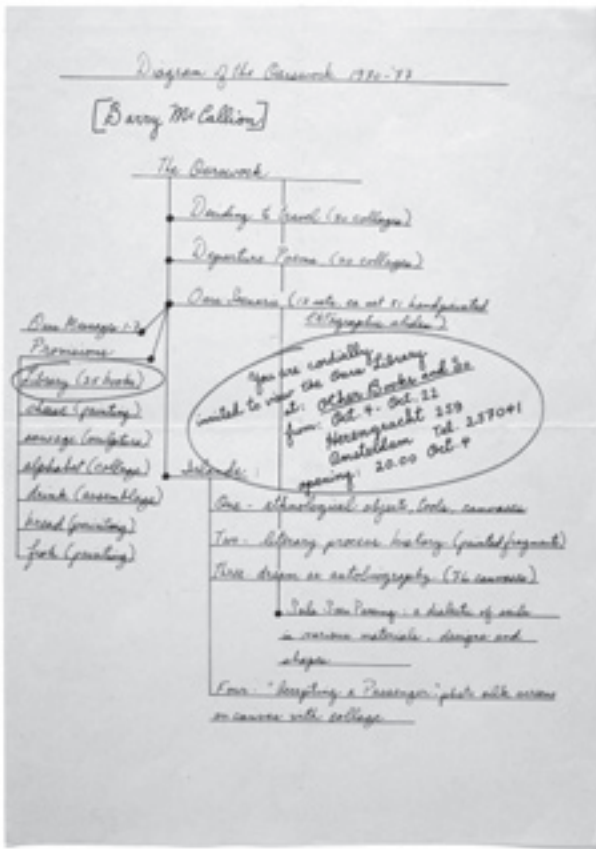 Diagram of the Oarswork 1970-'77
[Barry McCallion]
The Oarswork
Deciding to travel (20 collages)
Departure Poems (20 collages)
Oars Scenario (12 sets, ea set 81 handpainted
slides)
Oars Messages 1-7
Provisions
Library (25 books)
cheese (painting)
sausage (sculpture)
alphabet (collage)
drink (assemblage)
bread (painting)
fish (painting)
You are cordially
invited to view the Oars Library
at: Other Books and So
from: Oct 4 - Oct. 22
Herengracht 259
Amsterdam Tel. 257041
opening: 20.00 Oct 4
Islands:
One - ethnological objects, tools, canvasses
Two - literary process history (painted fragments)
Three dream as autobiography (76 canvasses)
Sails Pass Passing: a dialectic of sails
in various materials, designs and
shapes
Four: "Accepting a Passenger" photo silk screens
on canvas with collage